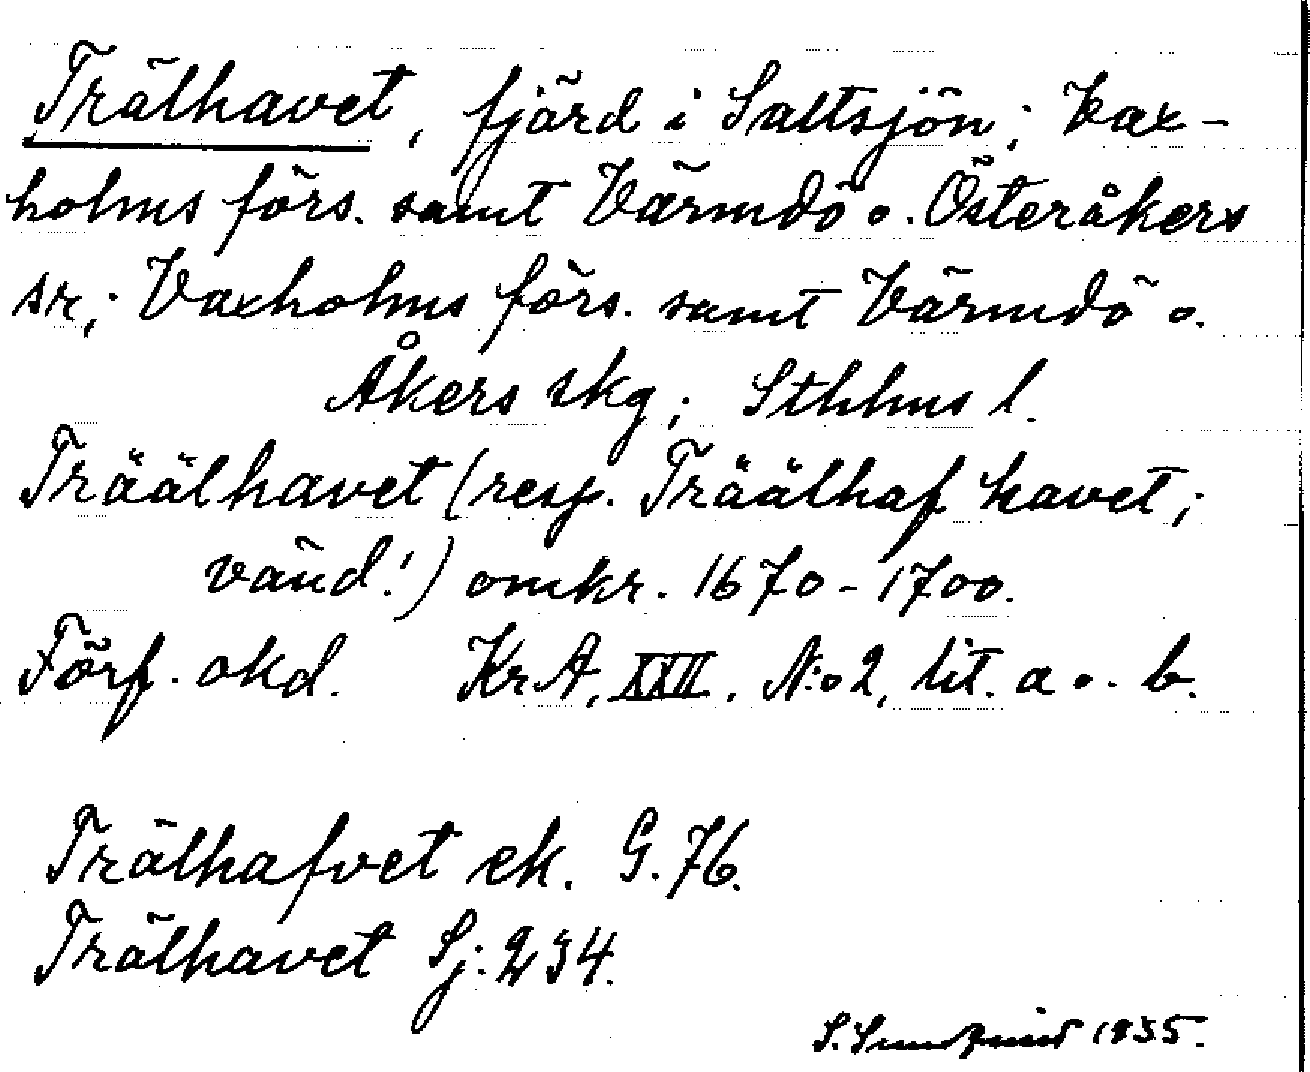 Trälhavet, fjärd i Saltsjön; Vax-
holms förs. samt Värmdö o. Österåkers
sr; Vaxholms förs. samt Värmdö o.
Åkers skg; Sthlms l.
Träälhavet (resp. Träälhaf havet;
vänd!) omkr. 1670-1700.
Förf. okd. KrA, XXII. N:o 2, lit. a o. b.
Trälhafvet ek. G. 76.
Trälhavet Sj. 234.
S. Sundqvist 1935.